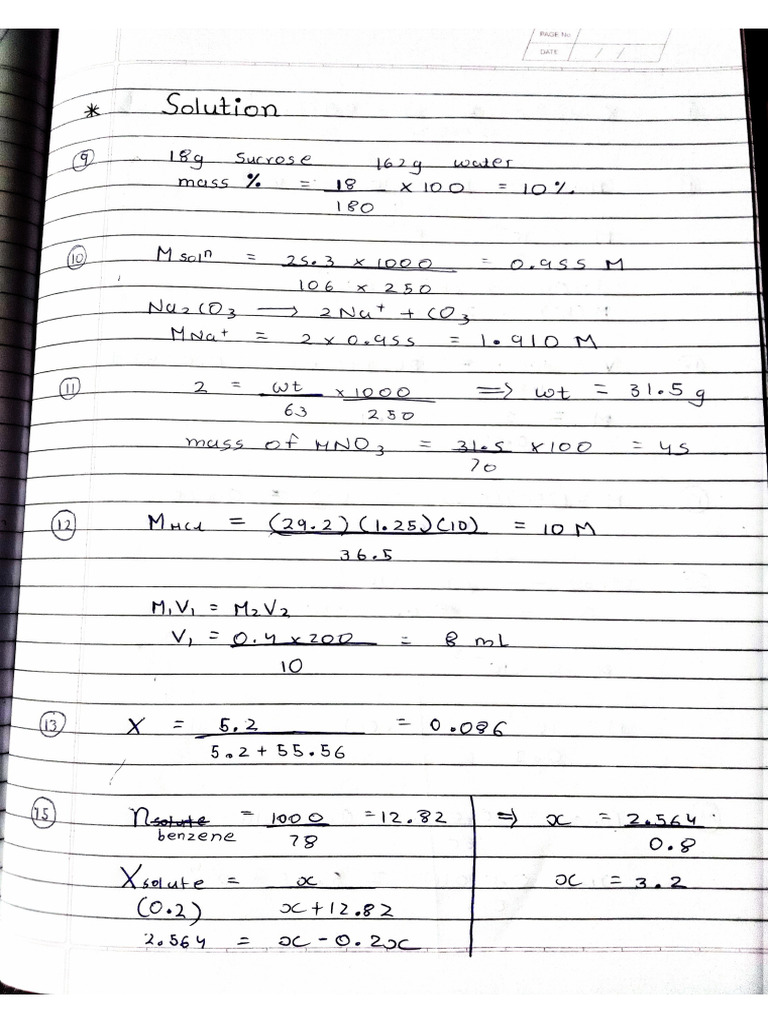 PAGE No
DATE / /
* Solution
(9) 18g sucrose 162g water
mass % = 18/180 × 100 = 10%
(10) M solⁿ = (25.3 × 1000)/(106 × 250) = 0.955 M
Na₂CO₃ → 2Na⁺ + CO₃
MNa⁺ = 2 × 0.955 = 1.910 M
(11) 2 = wt/63 × 1000/250 ⇒ wt = 31.5 g
mass of HNO₃ = 31.5/70 × 100 = 45
(12) M HCl = (29.2)(1.25)(10)/36.5 = 10 M
M₁V₁ = M₂V₂
V₁ = (0.4 × 200)/10 = 8 mL
(13) X = 5.2/(5.2 + 55.56) = 0.086
(15) n benzene = 1000/78 = 12.82
X solute (0.2) = x/(x + 12.82)
2.564 = x - 0.2x
⇒ x = 2.564/0.8
x = 3.2